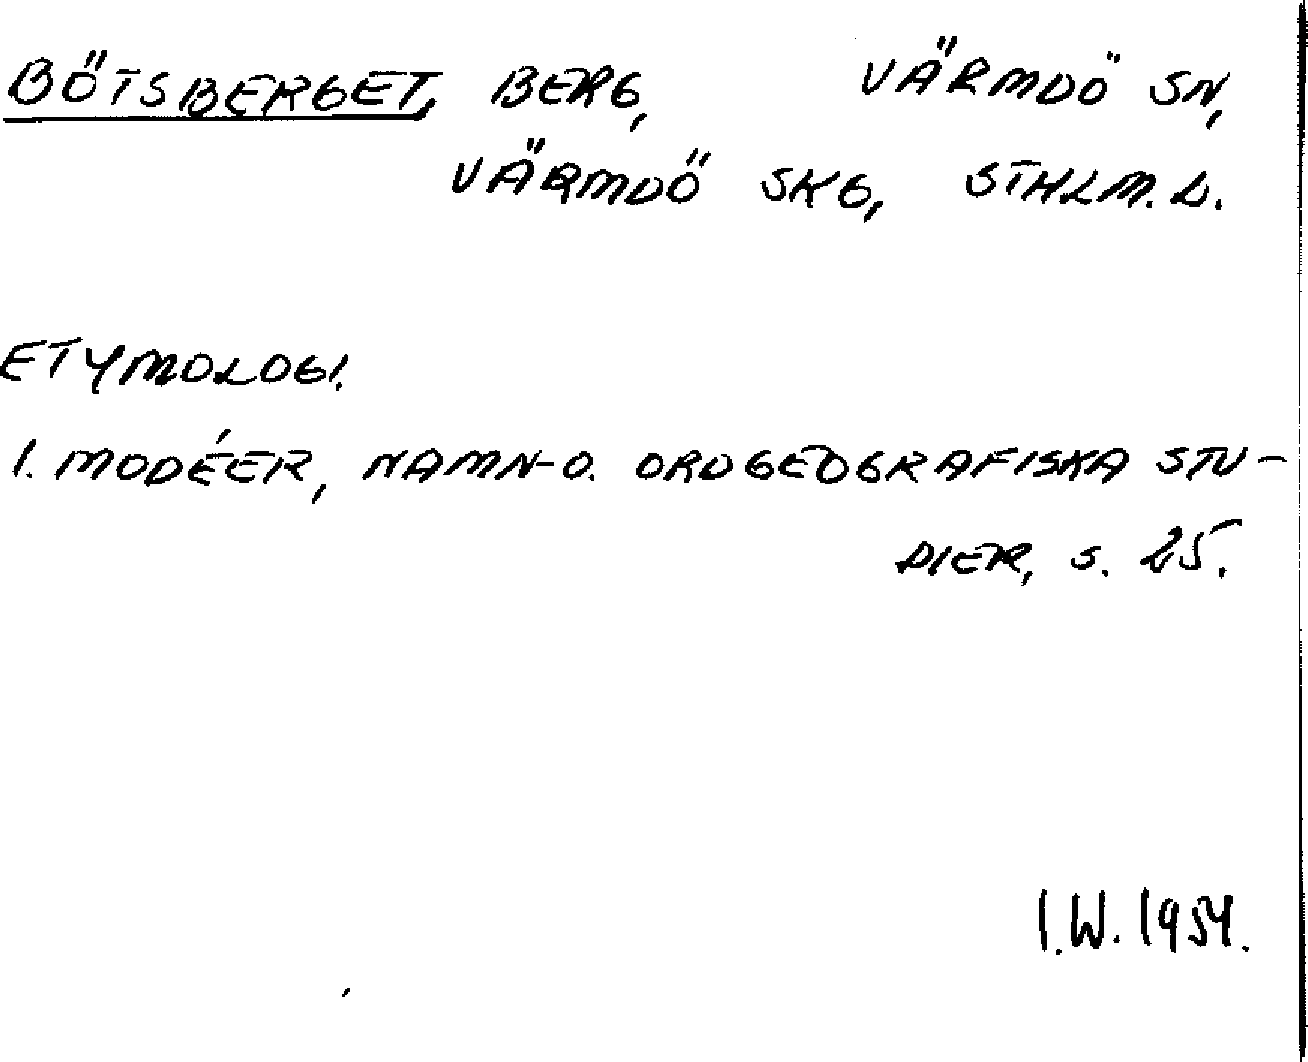 BÖTSBERGET, BERG, VÄRMDÖ SN,
VÄRMDÖ SKG, STHLM. L.
ETYMOLOGI.
I. MODÉER, NAMN- O. ORDGEOGRAFISKA STU-
DIER, S. 25.
I.W. 1954.